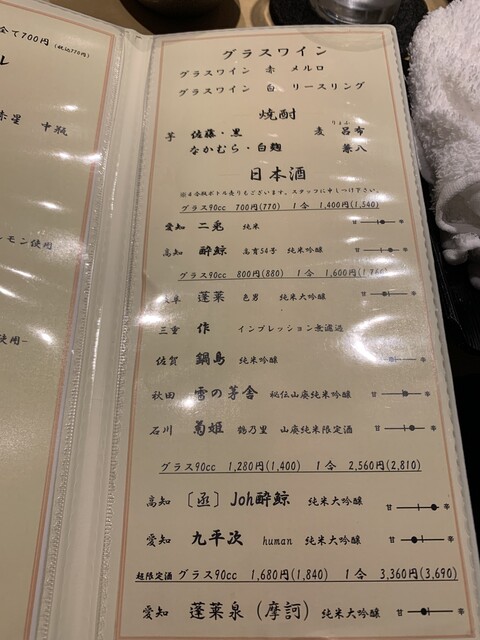 全て700円(税込770円)
ル
赤星 中瓶
モン使用
使用-
グラスワイン
グラスワイン 赤 メルロ
グラスワイン 白 リースリング
焼酎
芋 佐藤・黒 麦 呂布
りょふ
なかむら・白麹 兼八
日本酒
※4合瓶ボトル売りもございます。スタッフに申しつけ下さい。
グラス90cc 700円(770) 1合 1,400円(1,540)
愛知 二兎 純米 甘 辛
高知 酔鯨 高育54号 純米吟醸 甘 辛
グラス90cc 800円(880) 1合 1,600円(1,760)
蓬莱 色男 純米大吟醸 甘 辛
三重 作 インプレッション無濾過
佐賀 鍋島 純米吟醸 辛
秋田 雪の茅舎 秘伝山廃純米吟醸 甘 辛
石川 菊姫 鶴乃里 山廃純米限定酒 甘 辛
グラス90cc 1,280円(1,400) 1合 2,560円(2,810)
高知 〔丞〕Joh酔鯨 純米大吟醸 甘 辛
愛知 九平次 human 純米大吟醸 甘 辛
超限定酒 グラス90cc 1,680円(1,840) 1合 3,360円(3,690)
愛知 蓬莱泉(摩訶) 純米大吟醸 甘 辛